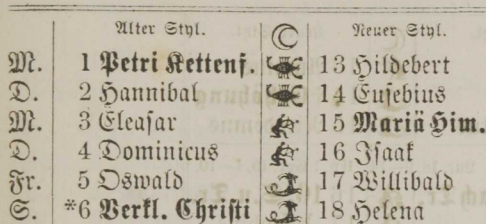 Alter Styl. ☾ Neuer Styl.
M. 1 Petri Kettenf. 13 Hildebert
D. 2 Hannibal 14 Eusebius
M. 3 Eleasar 15 Mariä Him.
D. 4 Dominicus 16 Isaak
Fr. 5 Oswald 17 Willibald
S. *6 Verkl. Christi 18 Helena